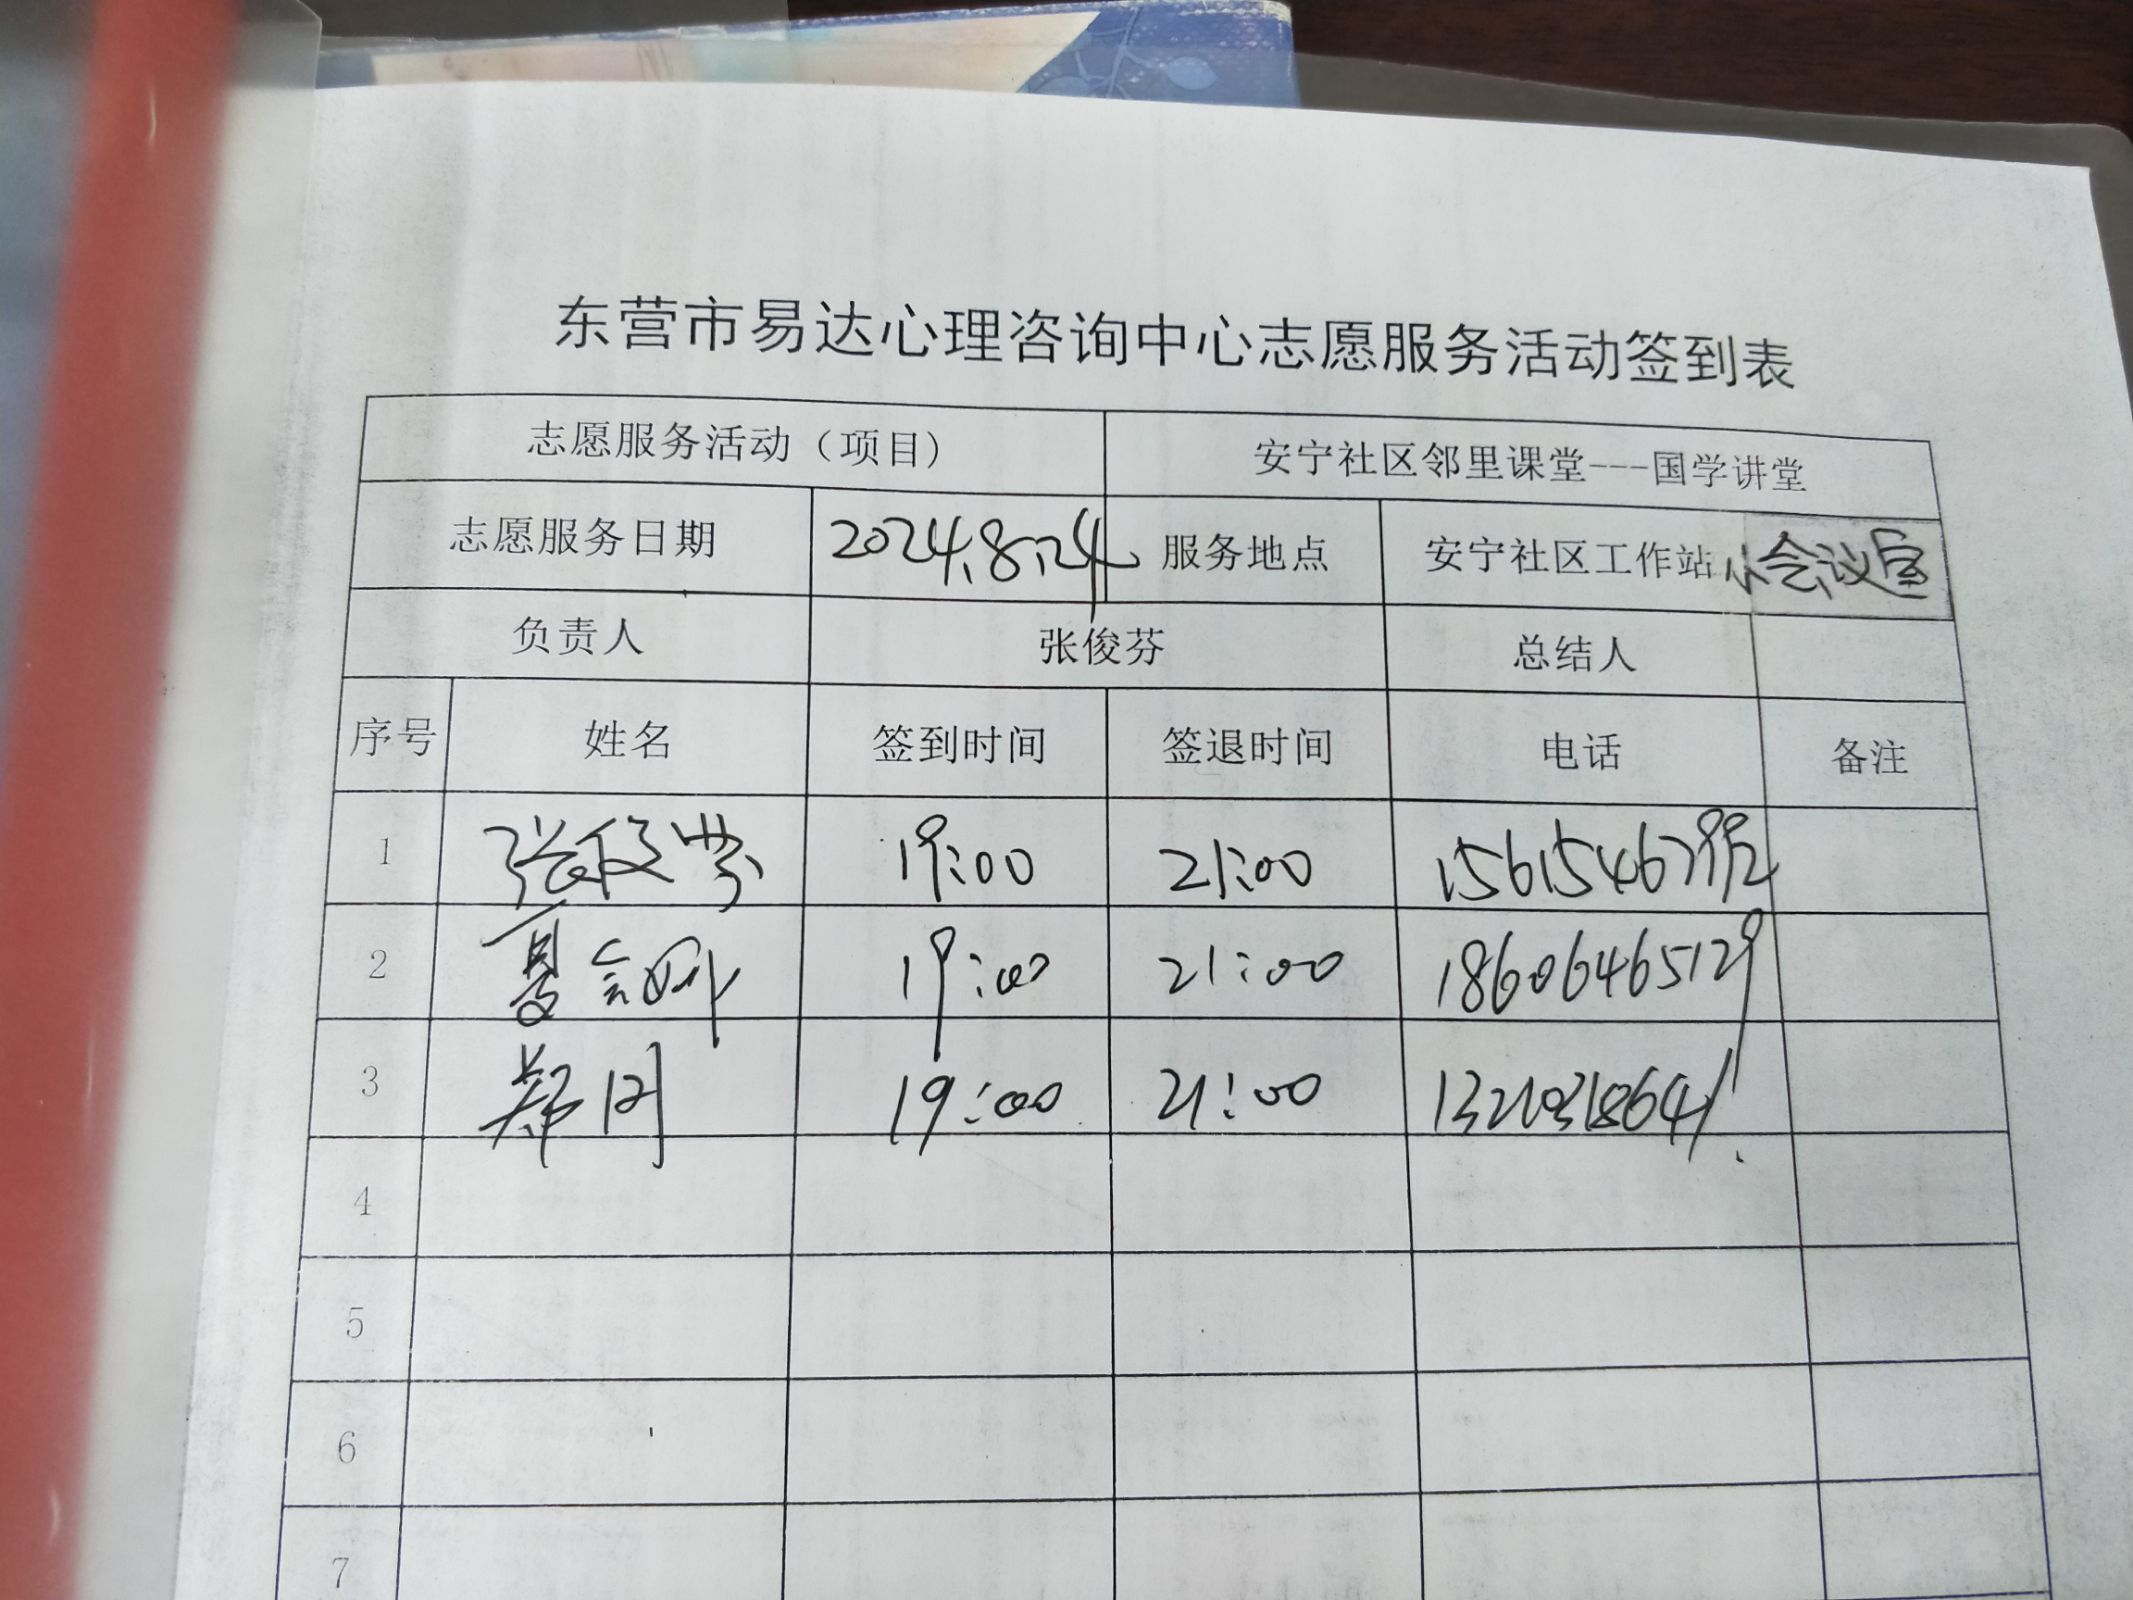 东营市易达心理咨询中心志愿服务活动签到表
志愿服务活动（项目） 安宁社区邻里课堂---国学讲堂
志愿服务日期 2024.8.24 服务地点 安宁社区工作站 小会议室
负责人 张俊芬 总结人
序号 姓名 签到时间 签退时间 电话 备注
1 张俊芬 19:00 21:00
2 19:00 21:00 18606465129
3 19:00 21:00
4
5
6
7